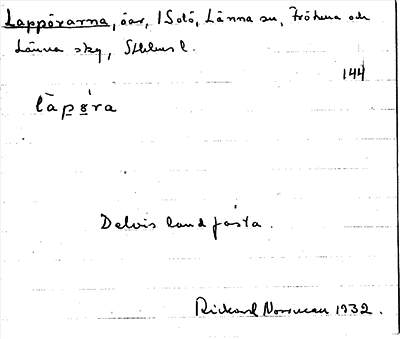 Lapporarna, öar, i Sotö, Länna sn, Frötuna och
Länna sky, Sthlms l.
144
làpöra
Delvis landfästa.
Rickard Norrman 1932.